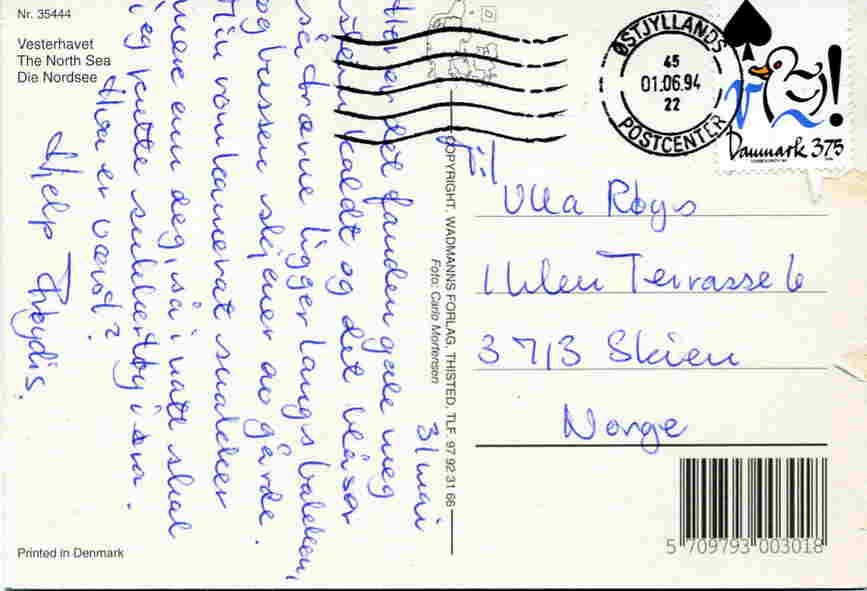 Nr. 35444
Vesterhavet
The North Sea
Die Nordsee
31 mai
Her er det fanden gale meg
steinkaldt og det blåser
så trærne ligger langs bakken,
og bussen skjener av gårde.
Min romkamerat snakker
mere enn deg, så i natt skal
jeg putte sukkertøy i øra.
Hva er værst?
Hjelp Frøydis.
Printed in Denmark
COPYRIGHT, WADMANNS FORLAG, THISTED, TLF. 97 92 31 66
Foto: Carlo Mortensen
ØSTJYLLANDS
45
01.06.94
22
POSTCENTER
Danmark 375
Til
Ulla Røys
Ihlen Terrasse 6
3713 Skien
Norge
5 709793 003018